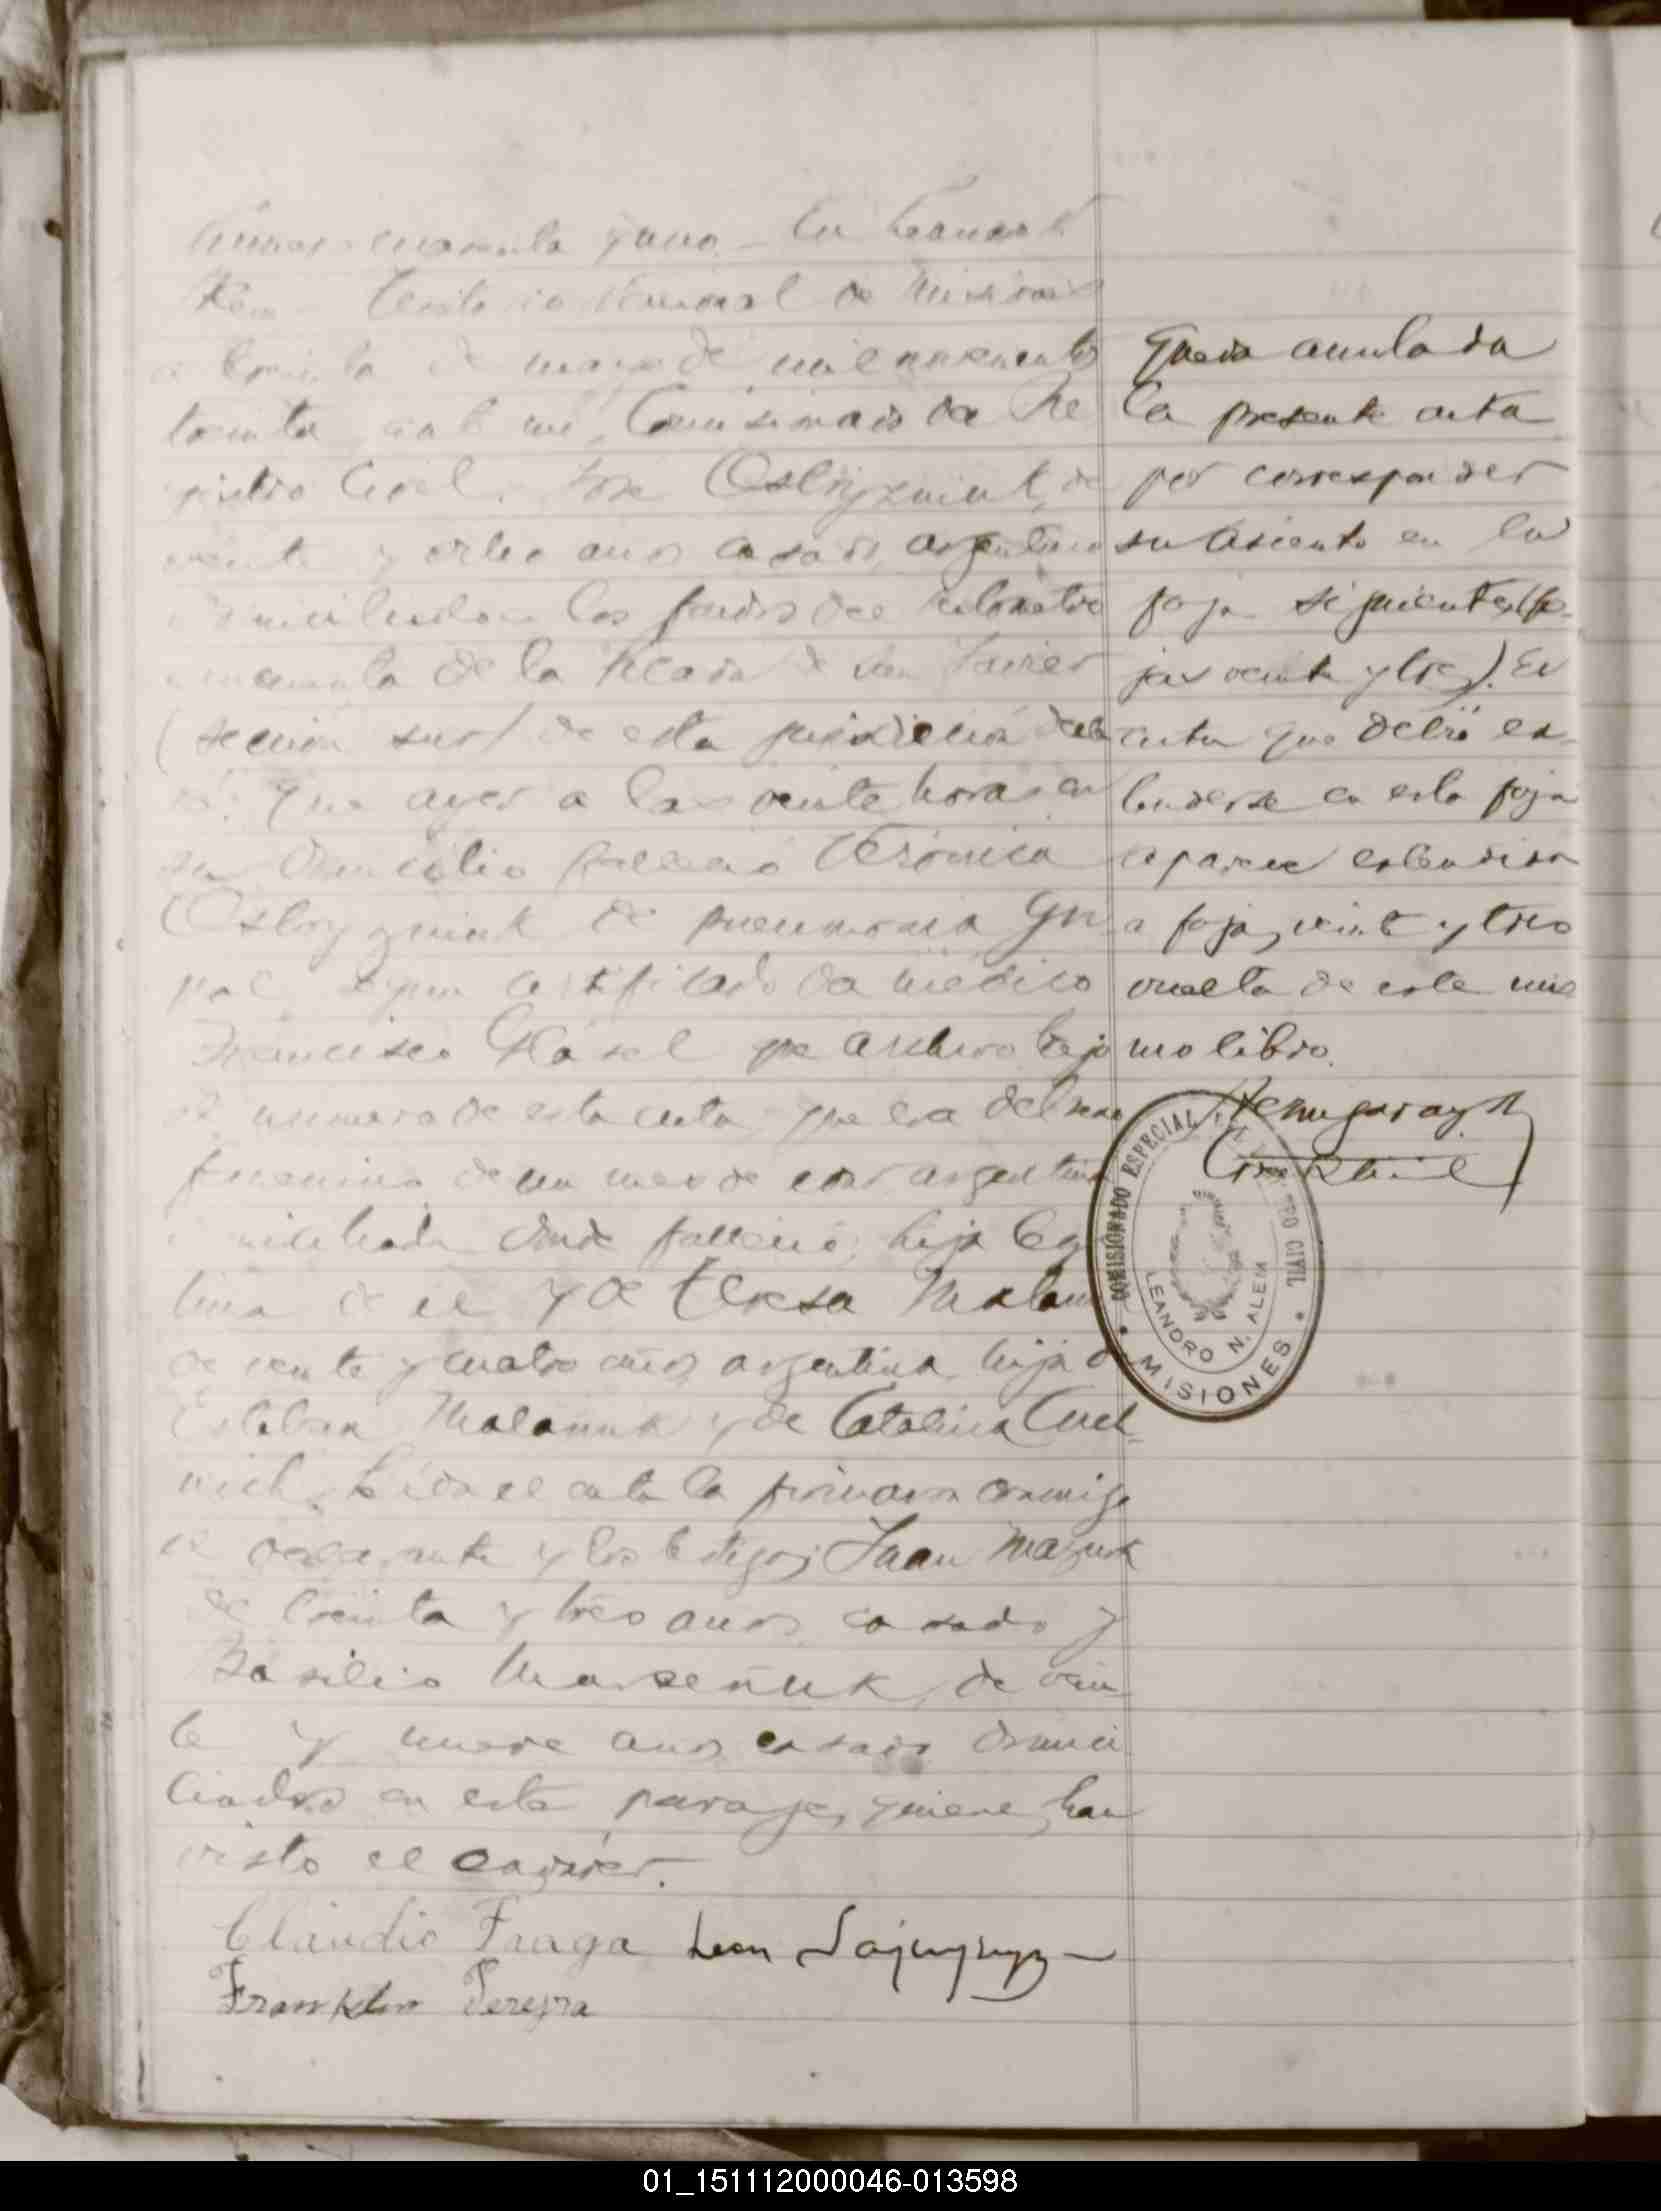 Número cuarenta y uno. En Leandro N.
Alem Territorio Nacional de Misiones
a treinta de mayo de mil novecientos
treinta ante mi, Comisionado de Re
gistro Civil. José Ostryzniuk, de
veinte y ocho años casado, argentino
domiciliado a los fondos del kilometro
cincuenta de la Picada de San Javier
(sección sur) de esta jurisdicción decla
ró: Que ayer a las veinte horas en
su domicilio falleció Verónica
Ostryzniuk de pneumonia gri
pal según certificado de médico
Francisco que archivo bajo
el numero de esta acta que era del sexo
femenino, de un mes de edad argentina
domiciliada donde falleció; hija legí
tima de el y de Teresa Malanuk
de veinte y cuatro años argentina, hija de
Esteban Malanuk y de Catalina
Leída el acta la firmaron conmigo
el declarante y los testigos Juan Mazuk
de treinta y tres años casado y
Basilio de vein
te y nueve años casado domici
liados en este paraje, quienes han
visto el cadáver.
Claudio Fraga Leon
Franklin Pereyra
Queda anulada
la presente acta
por corresponder
su asiento en la
foja siguiente (fo-
jas veinte y tres). El
acta que debió ex-
tenderse en esta foja
aparece extendida
a fojas veinte y tres
vuelta de este mis
mo libro.
COMISIONADO ESPECIAL CIVIL
LEANDRO N. ALEM
MISIONES
01_151112000046-013598